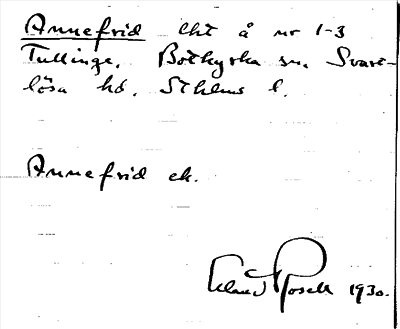 Annefrid lht å nr 1-3
Tullinge, Botkyrka sn. Svart-
lösa hd. Sthlms l.
Annefrid ek.
Erland Rosell 1930.